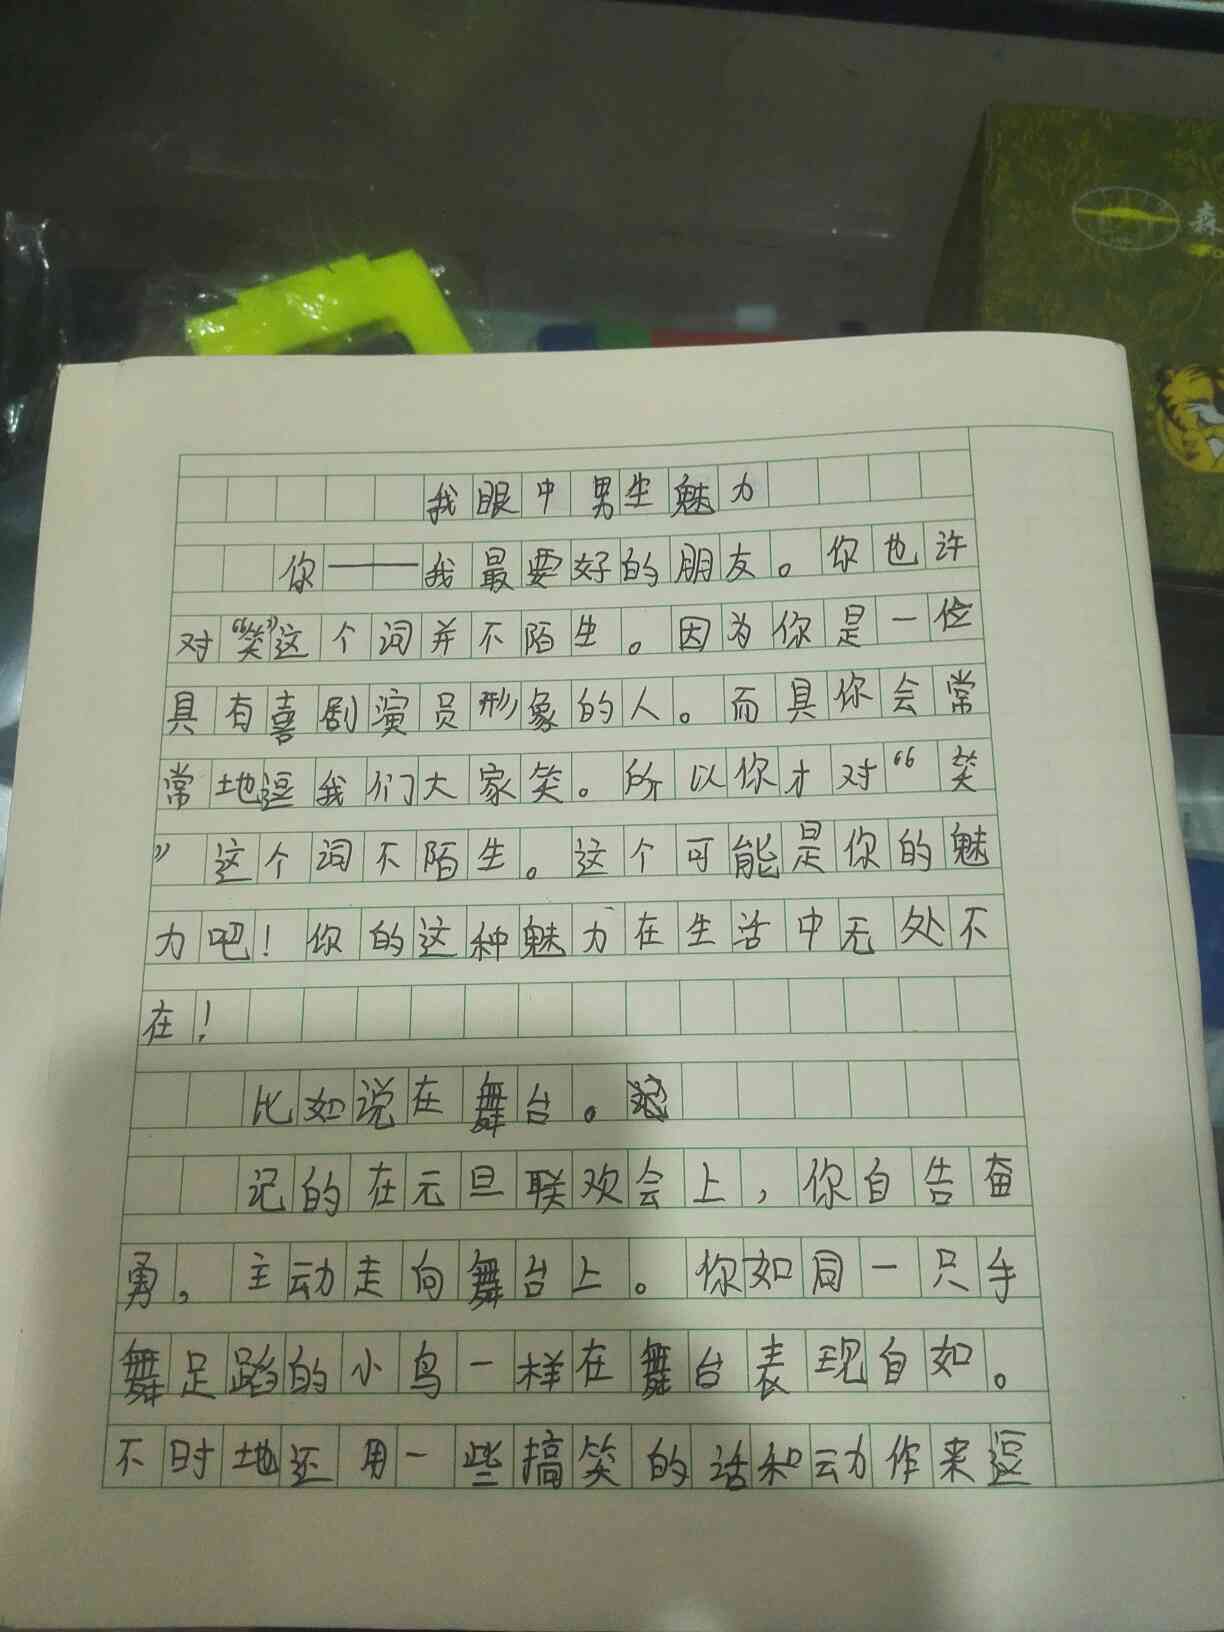 森
我眼中男生魅力
你——我最要好的朋友。你也许
对“笑”这个词并不陌生。因为你是一位
具有喜剧演员形象的人。而具你会常
常地逗我们大家笑。所以你才对“笑
”这个词不陌生。这个可能是你的魅
力吧！你的这种魅力在生活中无处不
在！
比如说在舞台。
记的在元旦联欢会上，你自告奋
勇，主动走向舞台上。你如同一只手
舞足蹈的小鸟一样在舞台表现自如。
不时地还用一些搞笑的话和动作来逗